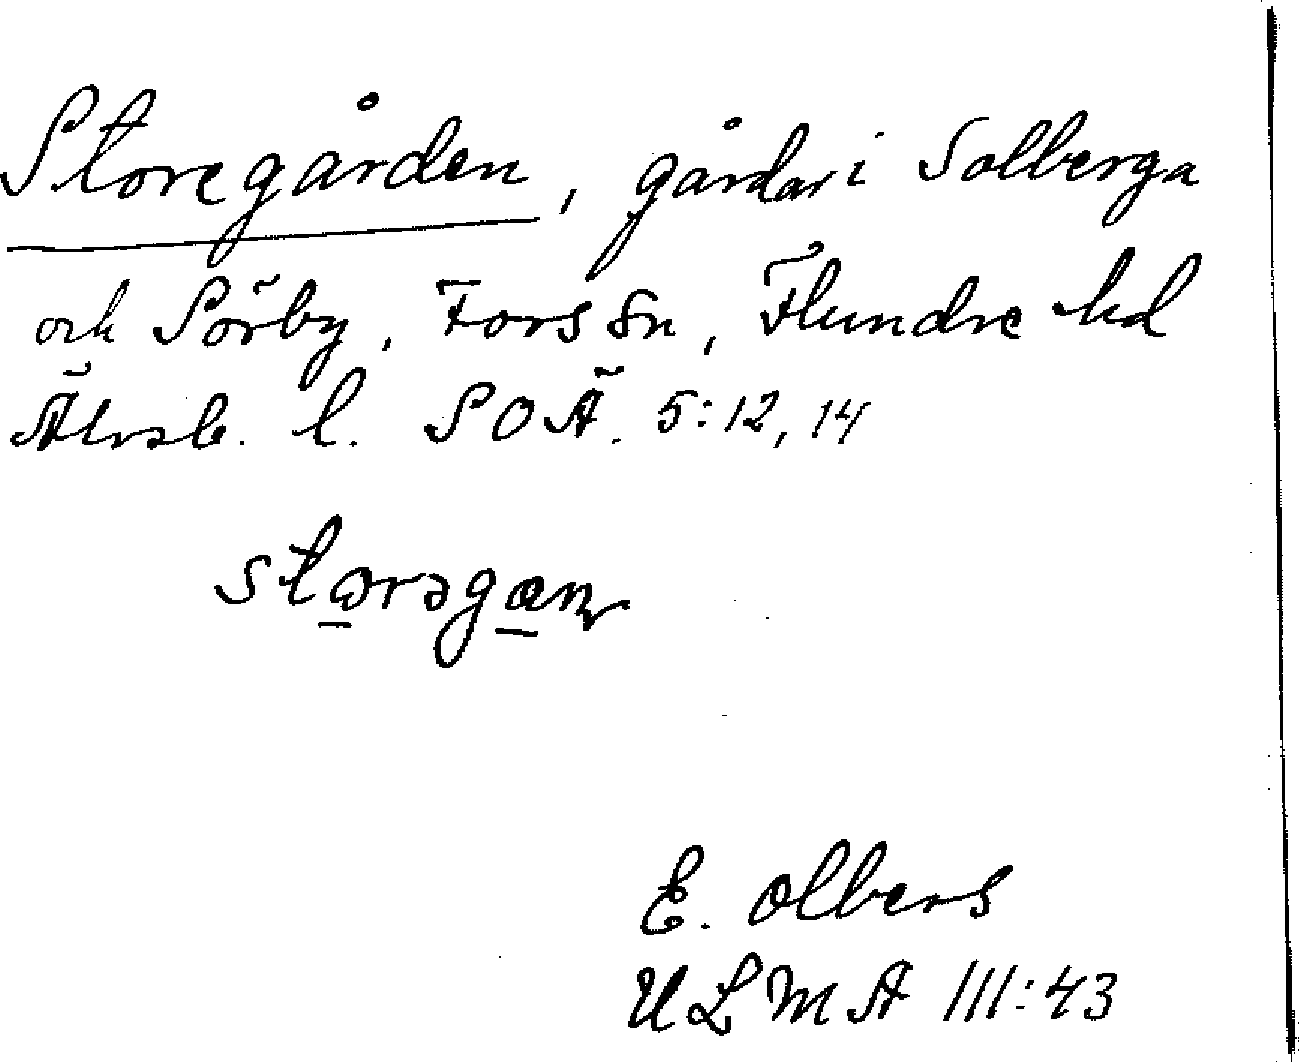 Storegården, gårdar i Solberga
och Sörby, Fors sn, Flundre hd
Älvsb. l. SOÄ. 5:12, 14
storəgan
E. Olbers
ULMA III:43